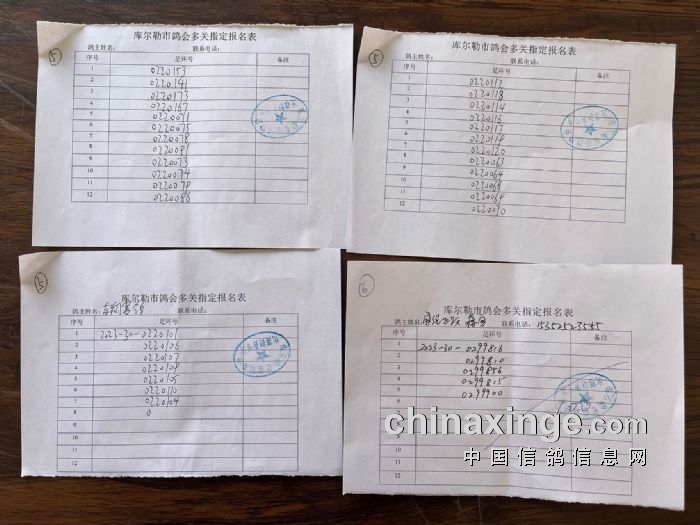 5
库尔勒市鸽会多关指定报名表
鸽主姓名: 联系电话:
序号 足环号 备注
1 0220153
2 0220141
3 0220173
4 0220167
5 0220071
6 0220075
7 0220078
8 0220081
9 0220073
10 0220074
11 0220079
12 0220086
5
库尔勒市鸽会多关指定报名表
鸽主姓名: 联系电话:
序号 足环号 备注
1 0220112
2 0220113
3 0220114
4 0220116
5 0220117
6 0220118
7 0220120
8 0220063
9 0220064
10 0220068
11 0220069
12 0220070
5
库尔勒市鸽会多关指定报名表
鸽主姓名: 联系电话:
序号 足环号 备注
1 2023-30-0220101
2 0220106
3 0220107
4 0220109
5 0220105
6 0220110
7 0220104
8 0
9
10
11
12
6
库尔勒市鸽会多关指定报名表
鸽主姓名: 联系电话:
序号 足环号 备注
1 2023-30-0299816
2 0299810
3 0299856
4 0299815
5 0299900
6
7
8
9
10
11
12
chinaxinge.com
中国信鸽信息网